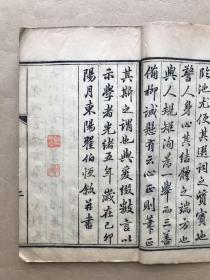 臨池尤便其選詞之寶也
警人身其結體之端方也
與人規矩洵一舉而三善
備柳誠懸有云心正則筆正
其斯之謂也與爰綴數言以
示學者光緒五年歲在己卯
陽月東陽瞿伯恆敘并書